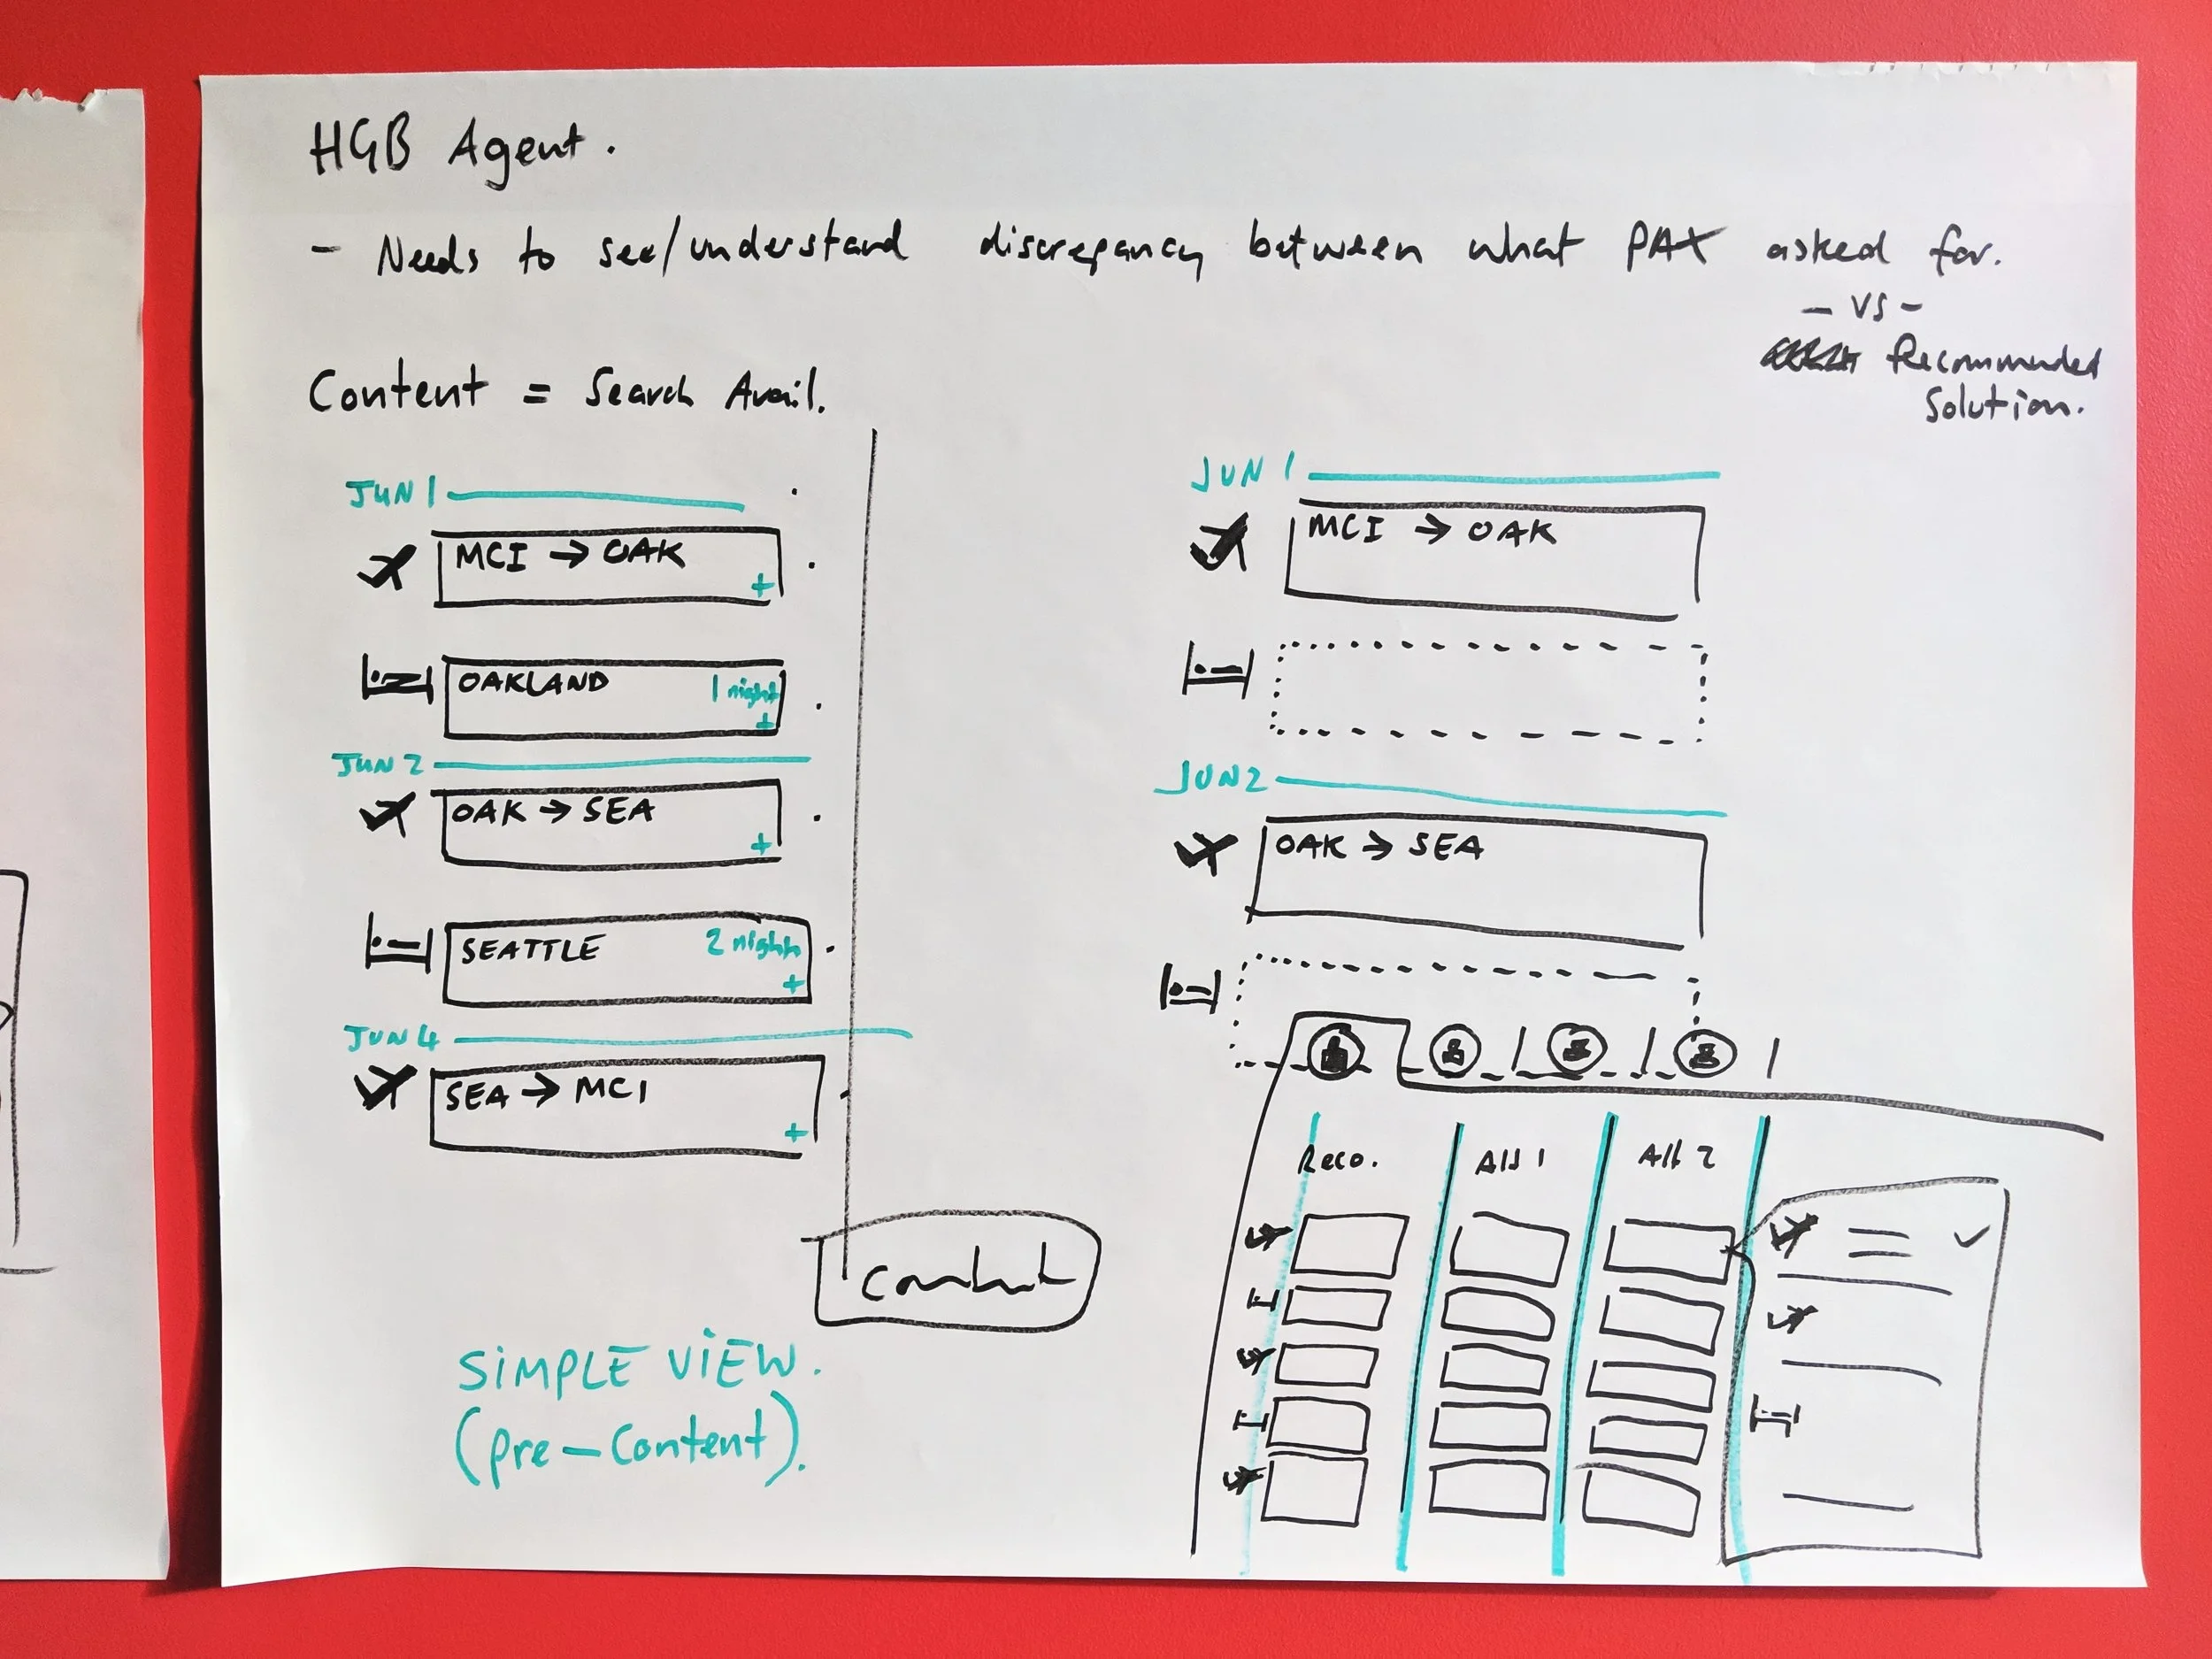 HGB Agent.
- Needs to see/understand discrepancy between what PAX asked for.
- VS -
Recommended
Solution.
Content = Search Avail.
JUN 1
MCI → OAK
+
OAKLAND 1 night
+
JUN 2
OAK → SEA
+
SEATTLE 2 nights
+
JUN 4
SEA → MCI
+
SIMPLE VIEW.
(pre-content).
JUN 1
MCI → OAK
JUN 2
OAK → SEA
Reco. Alt 1 Alt 2